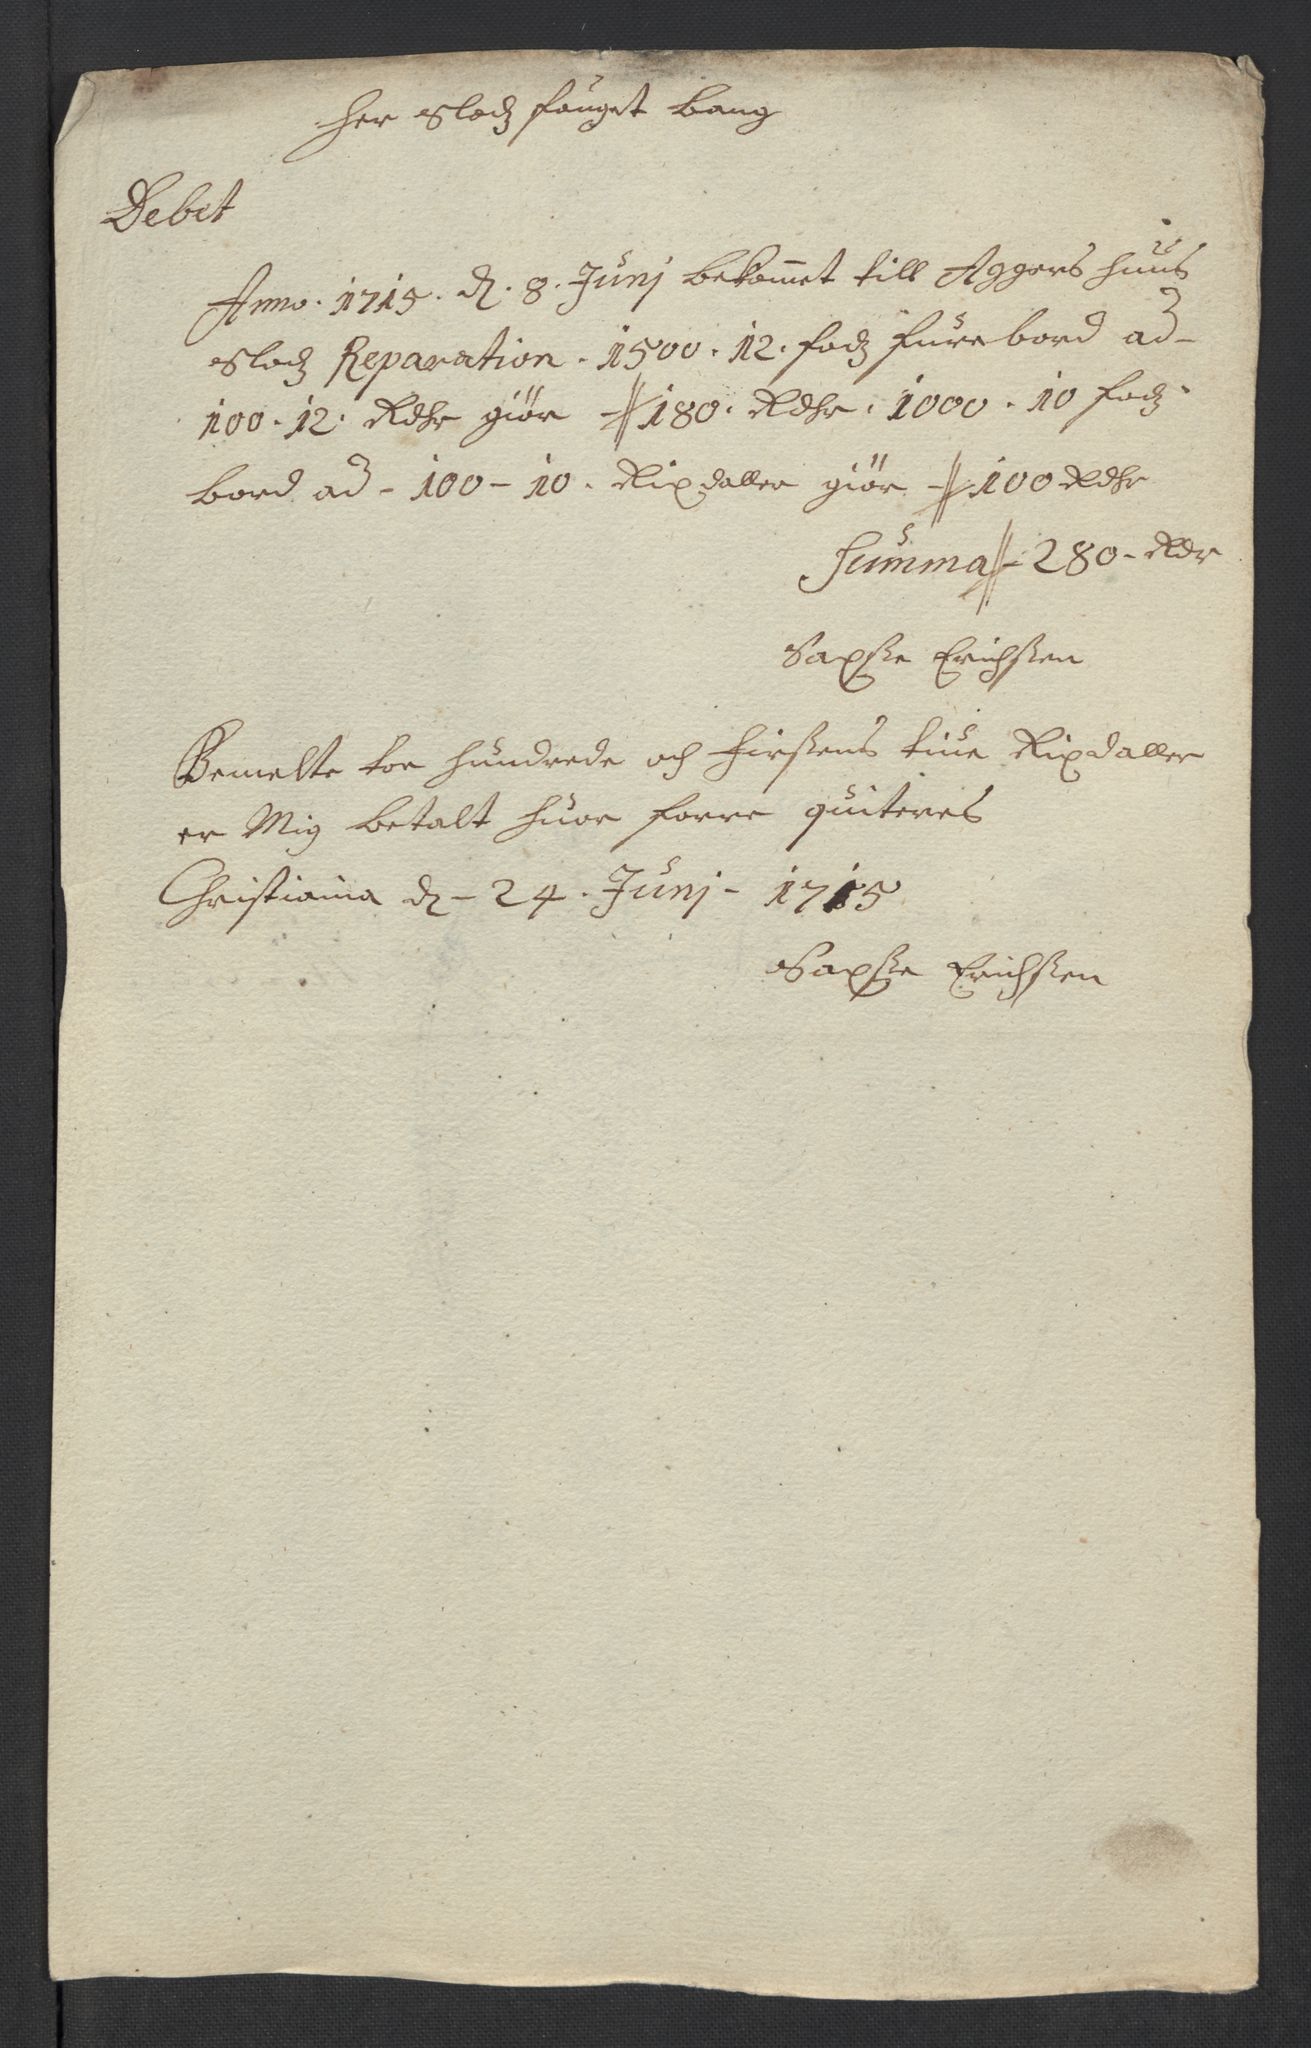 her Slodz fouget Bang
Debet
Anno. 1715. d. 8. Junj bekom̄et till Aggers huus
Slodz Reparation. 1500. 12. fodz fure bord ad-
100. 12. Rdhr giör - 180. Rdhr. 1000. 10 fodz
bord ad - 100 - 10. Rixdaller giör - 100 Rdhr
Summa - 280 - Rdr
Saxsse Erichssen
Bemelte toe hundrede och firssens tiue Rixdaller
er Mig betalt huor forre quiteres
Christiania d - 24. Junj - 1715
Saxsse Erichssen